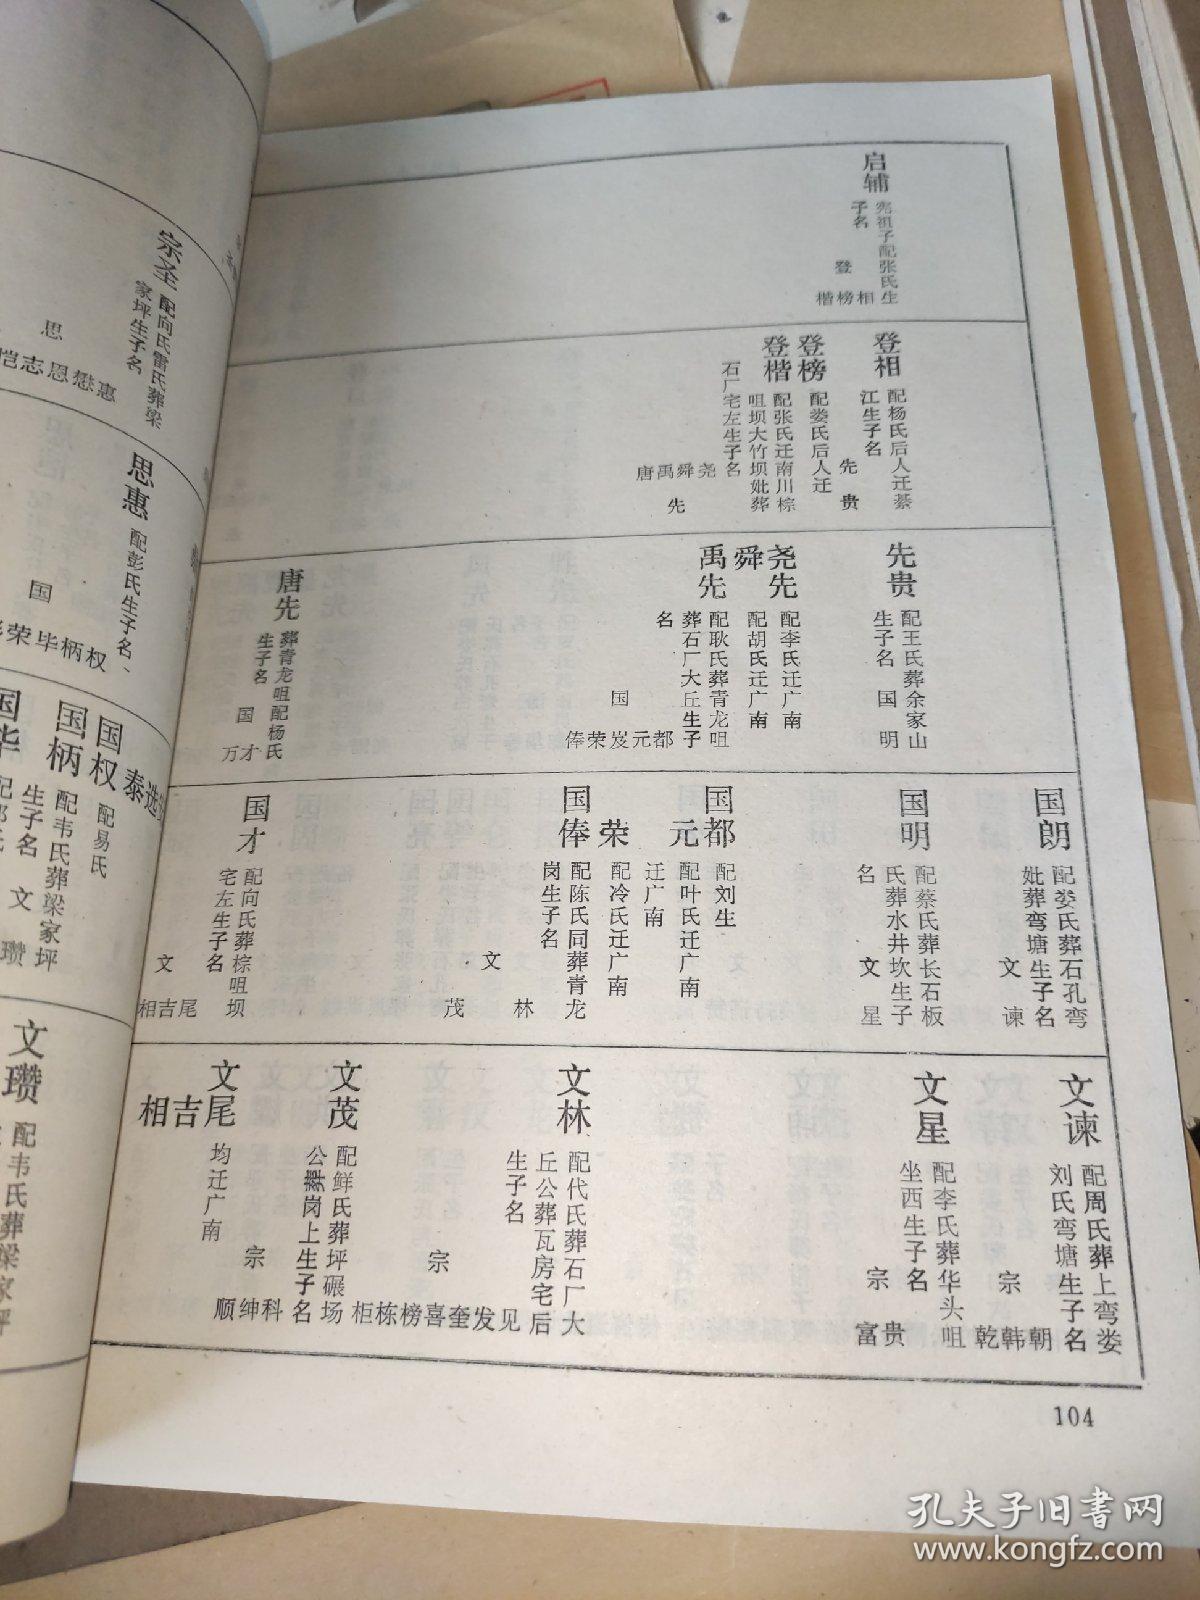 启辅
宪祖子配张氏生
子名
登
相榜楷
登相
配杨氏后人迁綦
江生子名
先贵
登榜
配娄氏后人迁
登楷
配张氏迁南川棕
咀坝大竹坝妣葬
石厂宅左生子名
尧舜禹唐
先
先贵
配王氏葬余家山
生子名
国明
尧先
配李氏迁广南
舜
配胡氏迁广南
禹先
配耿氏葬青龙咀
葬石厂大丘生子
名
国
都元岌荣俸
唐先
葬青龙咀配杨氏
生子名
国
才万
国朗
配娄氏葬石孔弯
妣葬弯塘生子名
文谏
国明
配蔡氏葬长石板
氏葬水井坎生子
名
文星
国都
配刘生
元
配叶氏迁广南
迁广南
荣
配冷氏迁广南
国俸
配陈氏同葬青龙
岗生子名
文
林茂
国才
配向氏葬棕咀坝
宅左生子名
文
尾吉相
文谏
配周氏葬上弯娄
刘氏弯塘生子名
宗
朝韩乾
文星
配李氏葬华头咀
坐西生子名
宗
贵富
文林
配代氏葬石厂大
丘公葬瓦房宅后
生子名
宗
见发奎喜榜栋柜
文茂
配鲜氏葬坪碾场
公岗上生子名
宗
科绅顺
文尾吉相
均迁广南
104
宗圣
配向氏雷氏葬梁
家坪生子名
思
惠懋恩志恺
思惠
配彭氏生子名
国
权柄毕荣
泰选
国权
配易氏
国柄
配韦氏葬梁家坪
生子名
文瓒
国华
文瓒
配韦氏葬梁家坪
孔夫子旧书网
www.kongfz.com